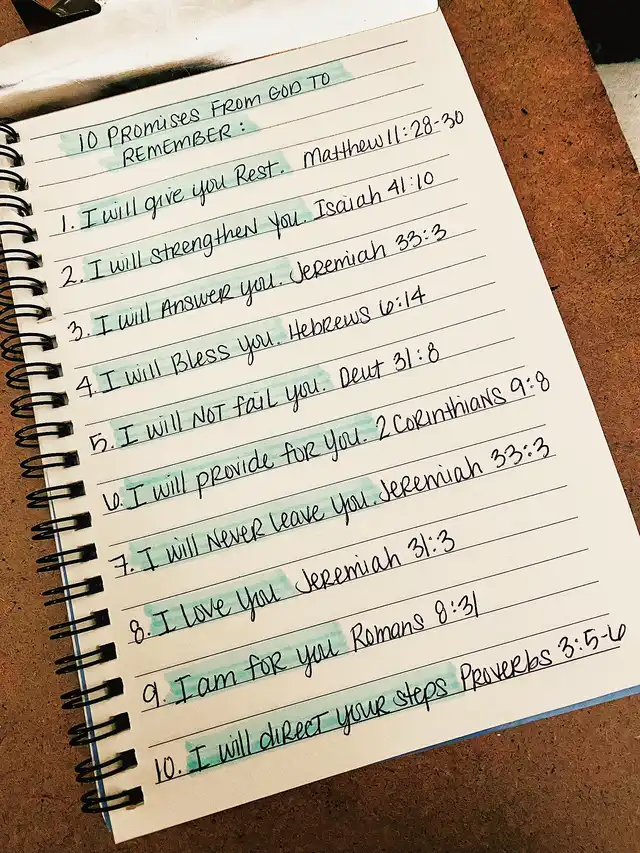 10 PROMISES FROM GOD TO
REMEMBER:
1. I will give you Rest. Matthew 11:28-30
2. I will strengthen you. Isaiah 41:10
3. I will Answer you. Jeremiah 33:3
4. I will Bless you. Hebrews 6:14
5. I will NOT fail you. Deut 31:8
6. I will provide for you. 2 Corinthians 9:8
7. I will Never leave you. Jeremiah 33:3
8. I love you Jeremiah 31:3
9. I am for you Romans 8:31
10. I will direct your steps Proverbs 3:5-6